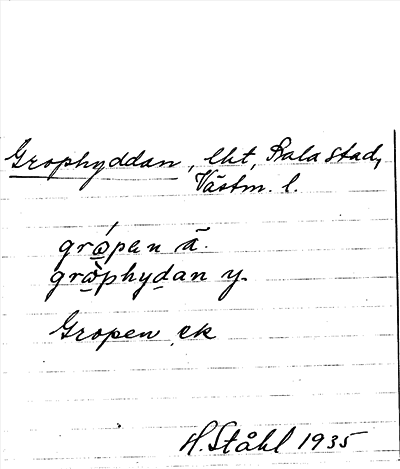 Grophyddan, lht, Sala stad,
Västm. l.
grǫ́pen ä.
grǫ̀phydan y.
Gropen ek
H. Ståhl 1935